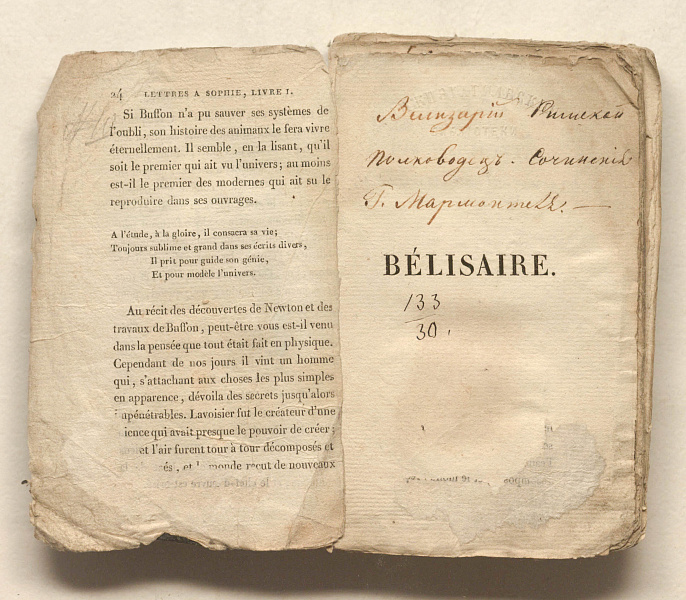 24 LETTRES A SOPHIE, LIVRE I.
Si Buffon n'a pu sauver ses systèmes de
l'oubli, son histoire des animaux le fera vivre
éternellement. Il semble, en la lisant, qu'il
soit le premier qui ait vu l'univers; au moins
est-il le premier des modernes qui ait su le
reproduire dans ses ouvrages.
A l'étude, à la gloire, il consacra sa vie;
Toujours sublime et grand dans ses écrits divers,
Il prit pour guide son génie,
Et pour modèle l'univers.
Au récit des découvertes de Newton et des
travaux de Buffon, peut-être vous est-il venu
dans la pensée que tout était fait en physique.
Cependant de nos jours il vint un homme
qui, s'attachant aux choses les plus simples
en apparence, dévoila des secrets jusqu'alors
apénétrables. Lavoisier fut le créateur d'une
ience qui avait presque le pouvoir de créer;
et l'air furent tour à tour décomposés et
és, et le monde reçut de nouveaux
Велизарій Римской
Полководецъ. Сочиненія
Г. Мармонтеля. —
BÉLISAIRE.
133
30.